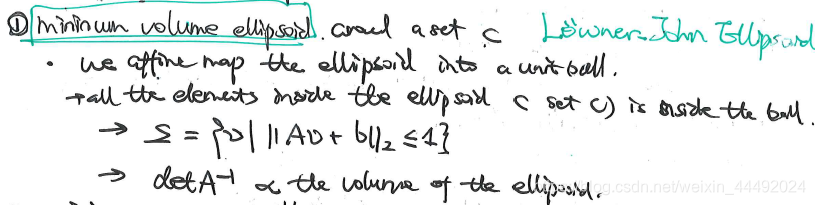 ① minimum volume ellipsoid. around a set C Löwner-John Ellipsoid
• we affine map the ellipsoid into a unit ball.
→ all the elements inside the ellipsoid ( set C) is inside the ball.
→ S = {v| ||Av + b||₂ ≤ 1}
→ det A⁻¹ ∝ the volume of the ellipsoid.
blog.csdn.net/weixin_44492024